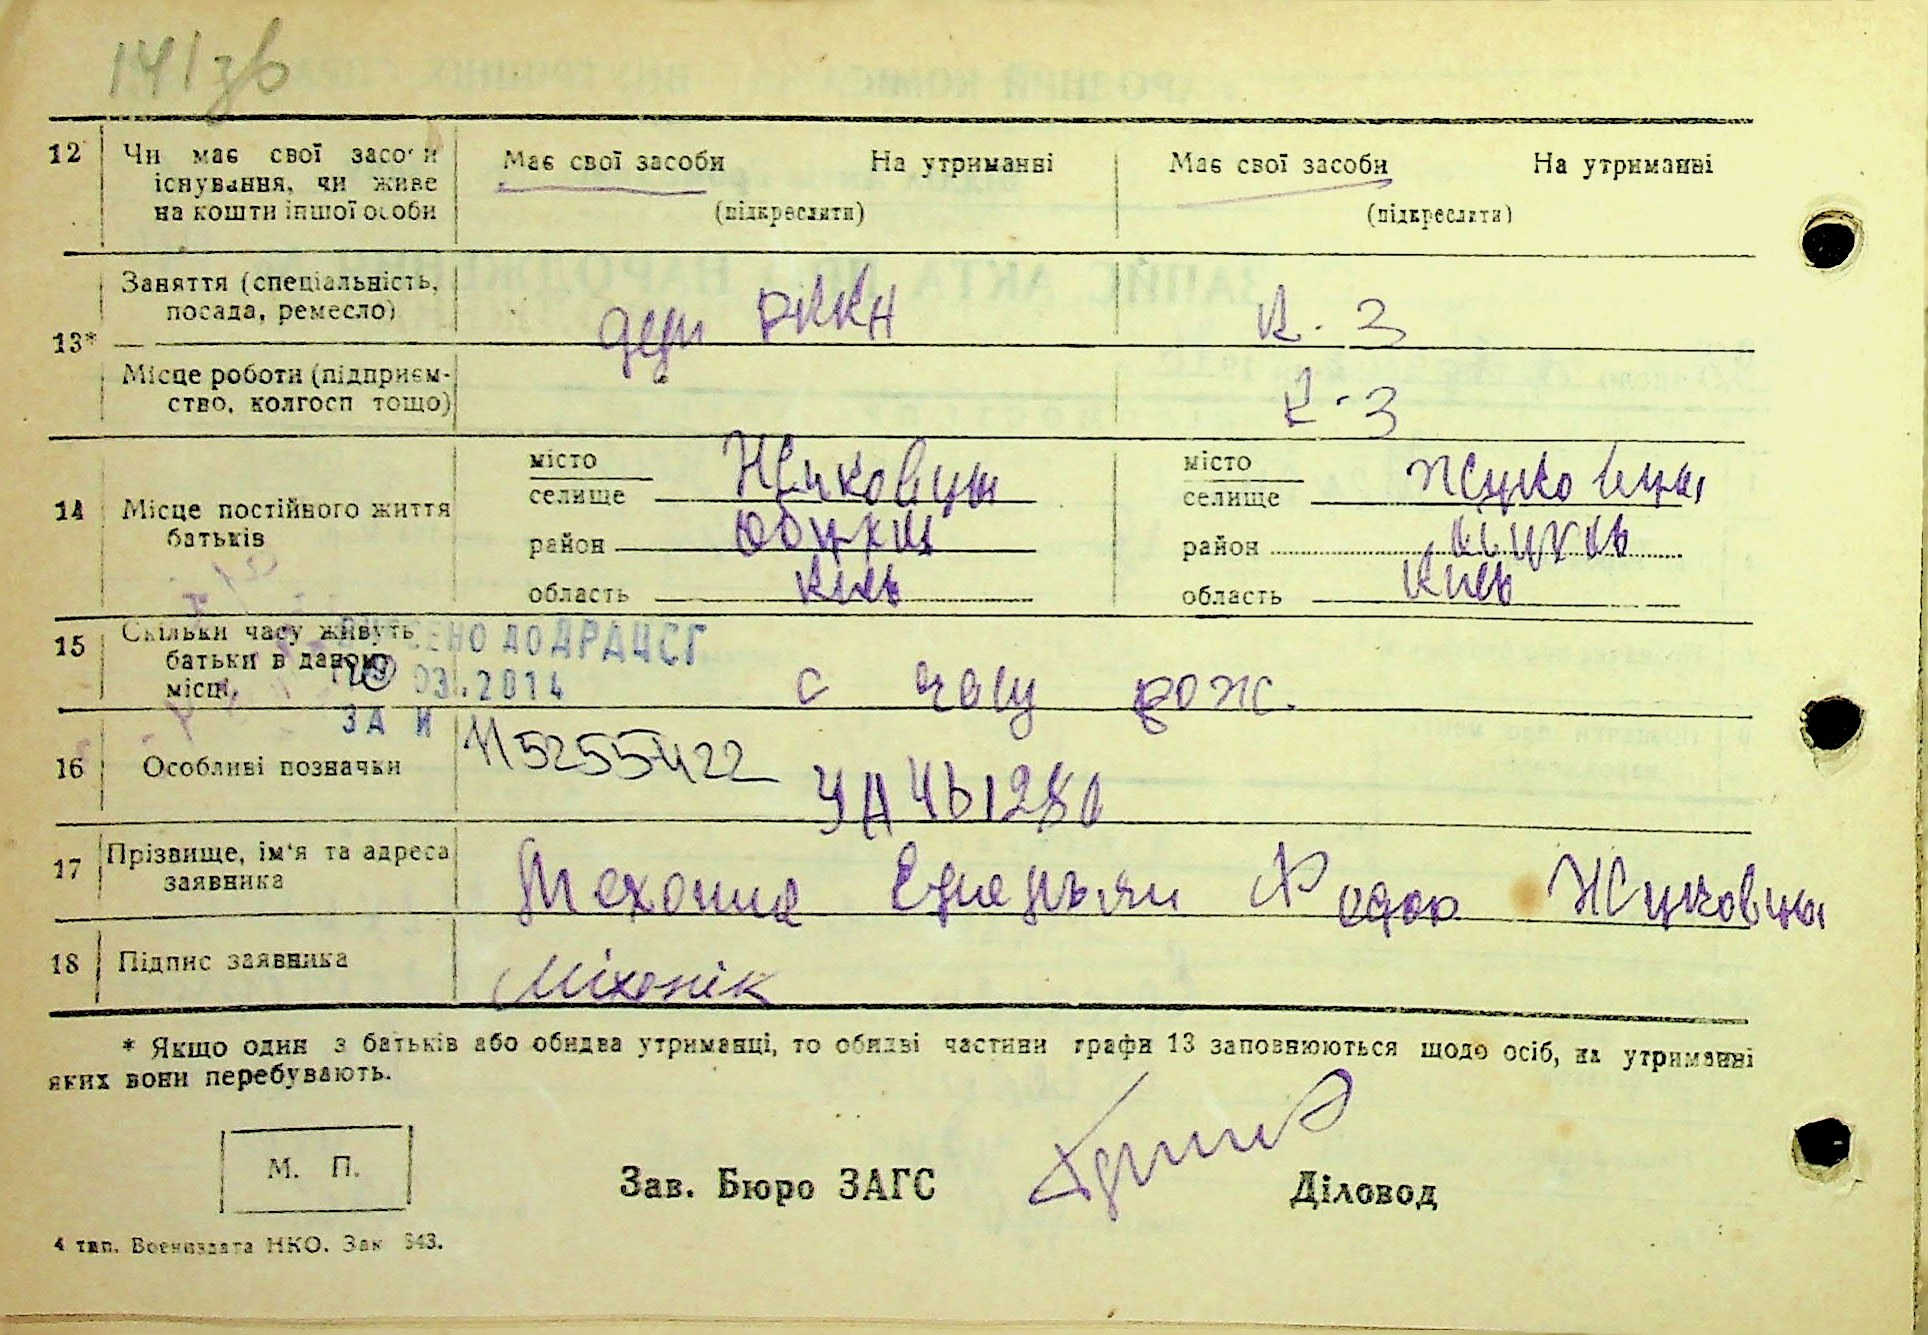 141зв
12 Чи має свої засоби Має свої засоби На утриманні Має свої засоби На утриманні
існування, чи живе
на кошти іншої особи (підкреслити) (підкреслити)
Заняття (спеціальність,
посада, ремесло) РККА К-З
13*
Місце роботи (підприєм-
ство, колгосп тощо) К-З
місто місто
селище Жуковцы селище Жуковцы
14 Місце постійного життя
батьків
район Обухів район
область Київ область Київ
15 Скільки часу живуть
батьки в даному
місці. с часу рож.
ДО ДРАЦСГ
03.2014
ЗА И
16 Особливі позначки 115255422
УА Чь1280
17 Прізвище, ім'я та адреса
заявника Жуковцы
18 Підпис заявника Міхонік
* Якщо один з батьків або обидва утриманці, то обидві частини графи 13 заповнюються щодо осіб, на утриманні
яких вони перебувають.
М. П.
Зав. Бюро ЗАГС Діловод
4 тип. Воениздата НКО. Зак 543.